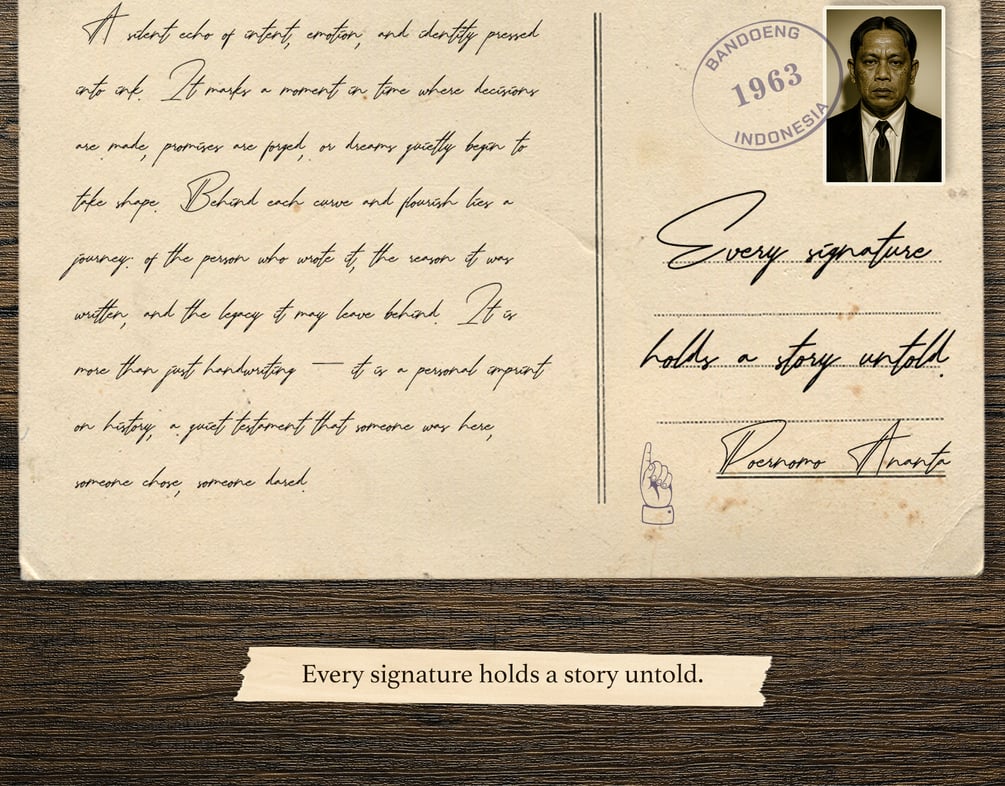 A silent echo of intent, emotion, and identity pressed
into ink. It marks a moment in time where decisions
are made, promises are forged, or dreams quietly begin to
take shape. Behind each curve and flourish lies a
journey: of the person who wrote it, the reason it was
written, and the legacy it may leave behind. It is
more than just handwriting — it is a personal imprint
on history, a quiet testament that someone was here,
someone chose, someone dared.
BANDOENG
1963
INDONESIA
Every signature
holds a story untold.
Poernomo Ananta
Every signature holds a story untold.